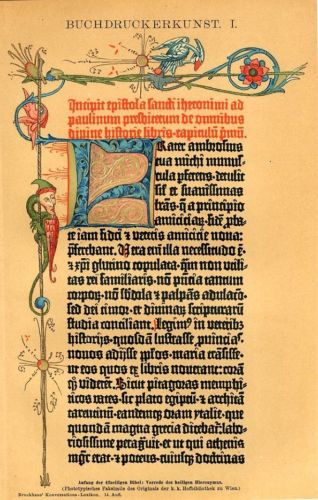 BUCHDRUCKERKUNST. I.
Incipit epistola sancti iheronimi ad
paulinum presbiterum de omnibus
divine historie libris. capitulū p̄mū.
Frater ambrosius
tua michi munus-
cula perferens. detulit
sil' et suavissimas
lr̄as. q̄ a principio
amicicia𝑟ꝫ. fidē p̄ba-
te iam fidei et veteris amicicie nova:
preferebant. Vera em̄ illa necessitudo ē.
et xp̄i glutino copulata. qm̄ non utili-
tas rei familiaris. nō p̄ncia tantum
corpo𝑟ꝫ. nō sb̄dola et palpās adulacō.
sed dei timor. et divina𝑟ꝫ scripturarum
studia conciliant. Legim9 in veterib3
historijs. quosdā lustrasse p̄vincias.
novos adijsse pp̄los. maria trāsisse.
ut eos quos ex libris noverant: coram
q3 viderēt. Sicut pitagoras memphi-
ticos vates. sic plato egiptū. et architā
tarentinū. eandem3 oram ytalie. que
quondā magna grecia dicebat̄: labo-
riosissime peragravit. et ut qui athenis
mgr̄ erat. et potens. cuius3 doctrinas
Anfang der 42zeiligen Bibel: Vorrede des heiligen Hieronymus.
(Phototypisches Faksimile des Originals der k. k. Hofbibliothek zu Wien.)
Brockhaus' Konversations-Lexikon. 14. Aufl.